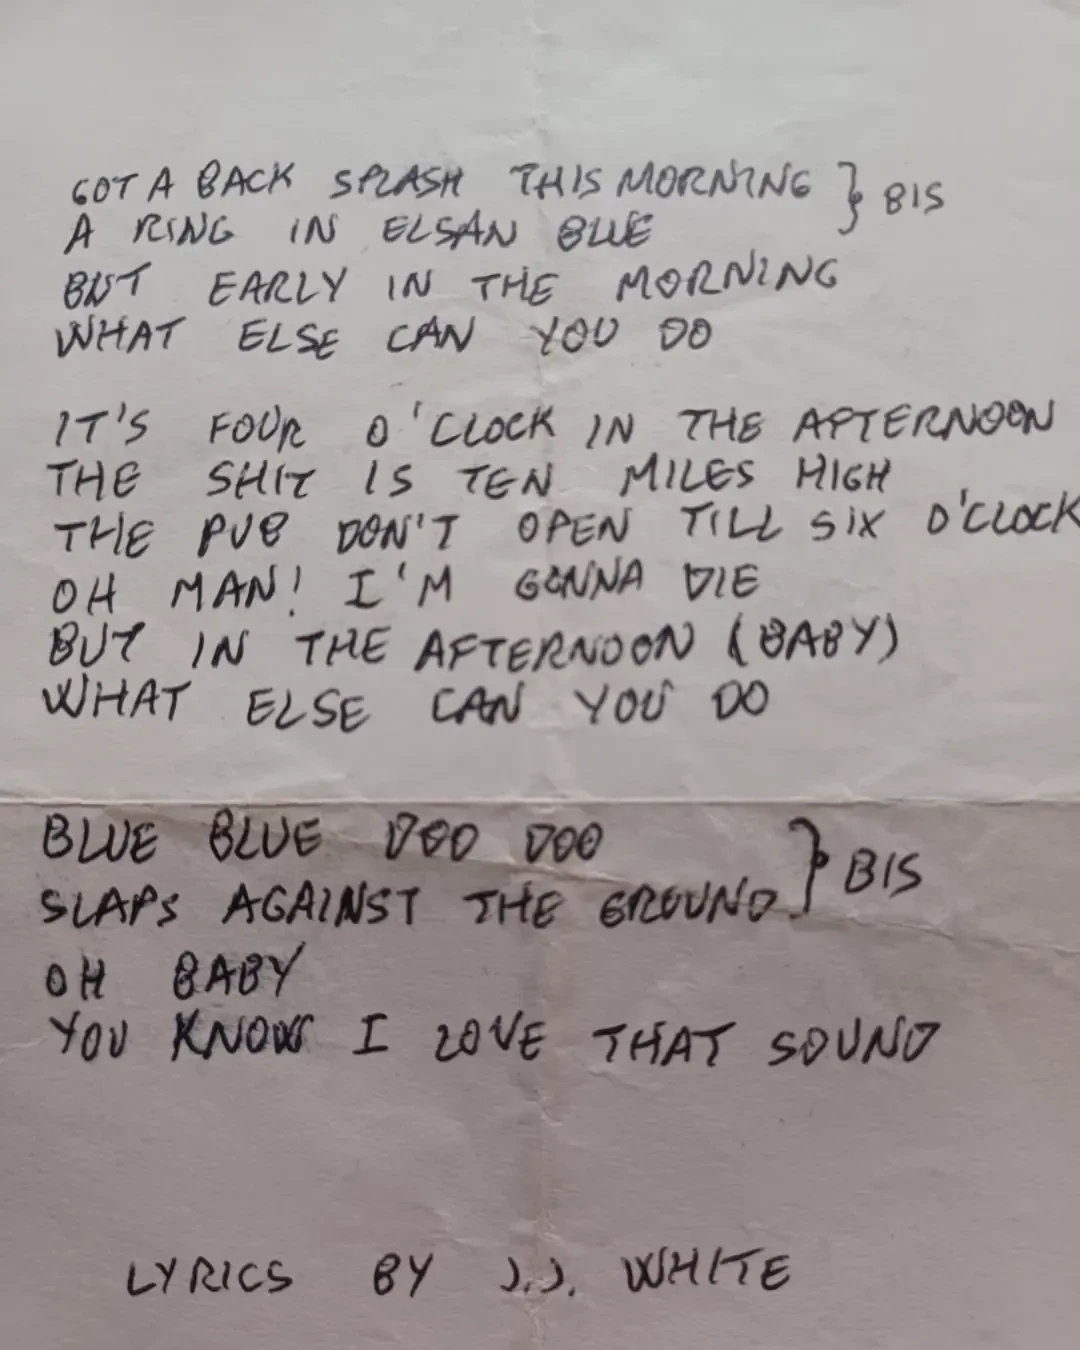 GOT A BACK SPLASH THIS MORNING } BIS
A RING IN ELSAN BLUE
BUT EARLY IN THE MORNING
WHAT ELSE CAN YOU DO
IT'S FOUR O'CLOCK IN THE AFTERNOON
THE SHIT IS TEN MILES HIGH
THE PUB DON'T OPEN TILL SIX O'CLOCK
OH MAN! I'M GONNA DIE
BUT IN THE AFTERNOON (BABY)
WHAT ELSE CAN YOU DO
BLUE BLUE DOO DOO } BIS
SLAPS AGAINST THE GROUND
OH BABY
YOU KNOW I LOVE THAT SOUND
LYRICS BY J.J. WHITE